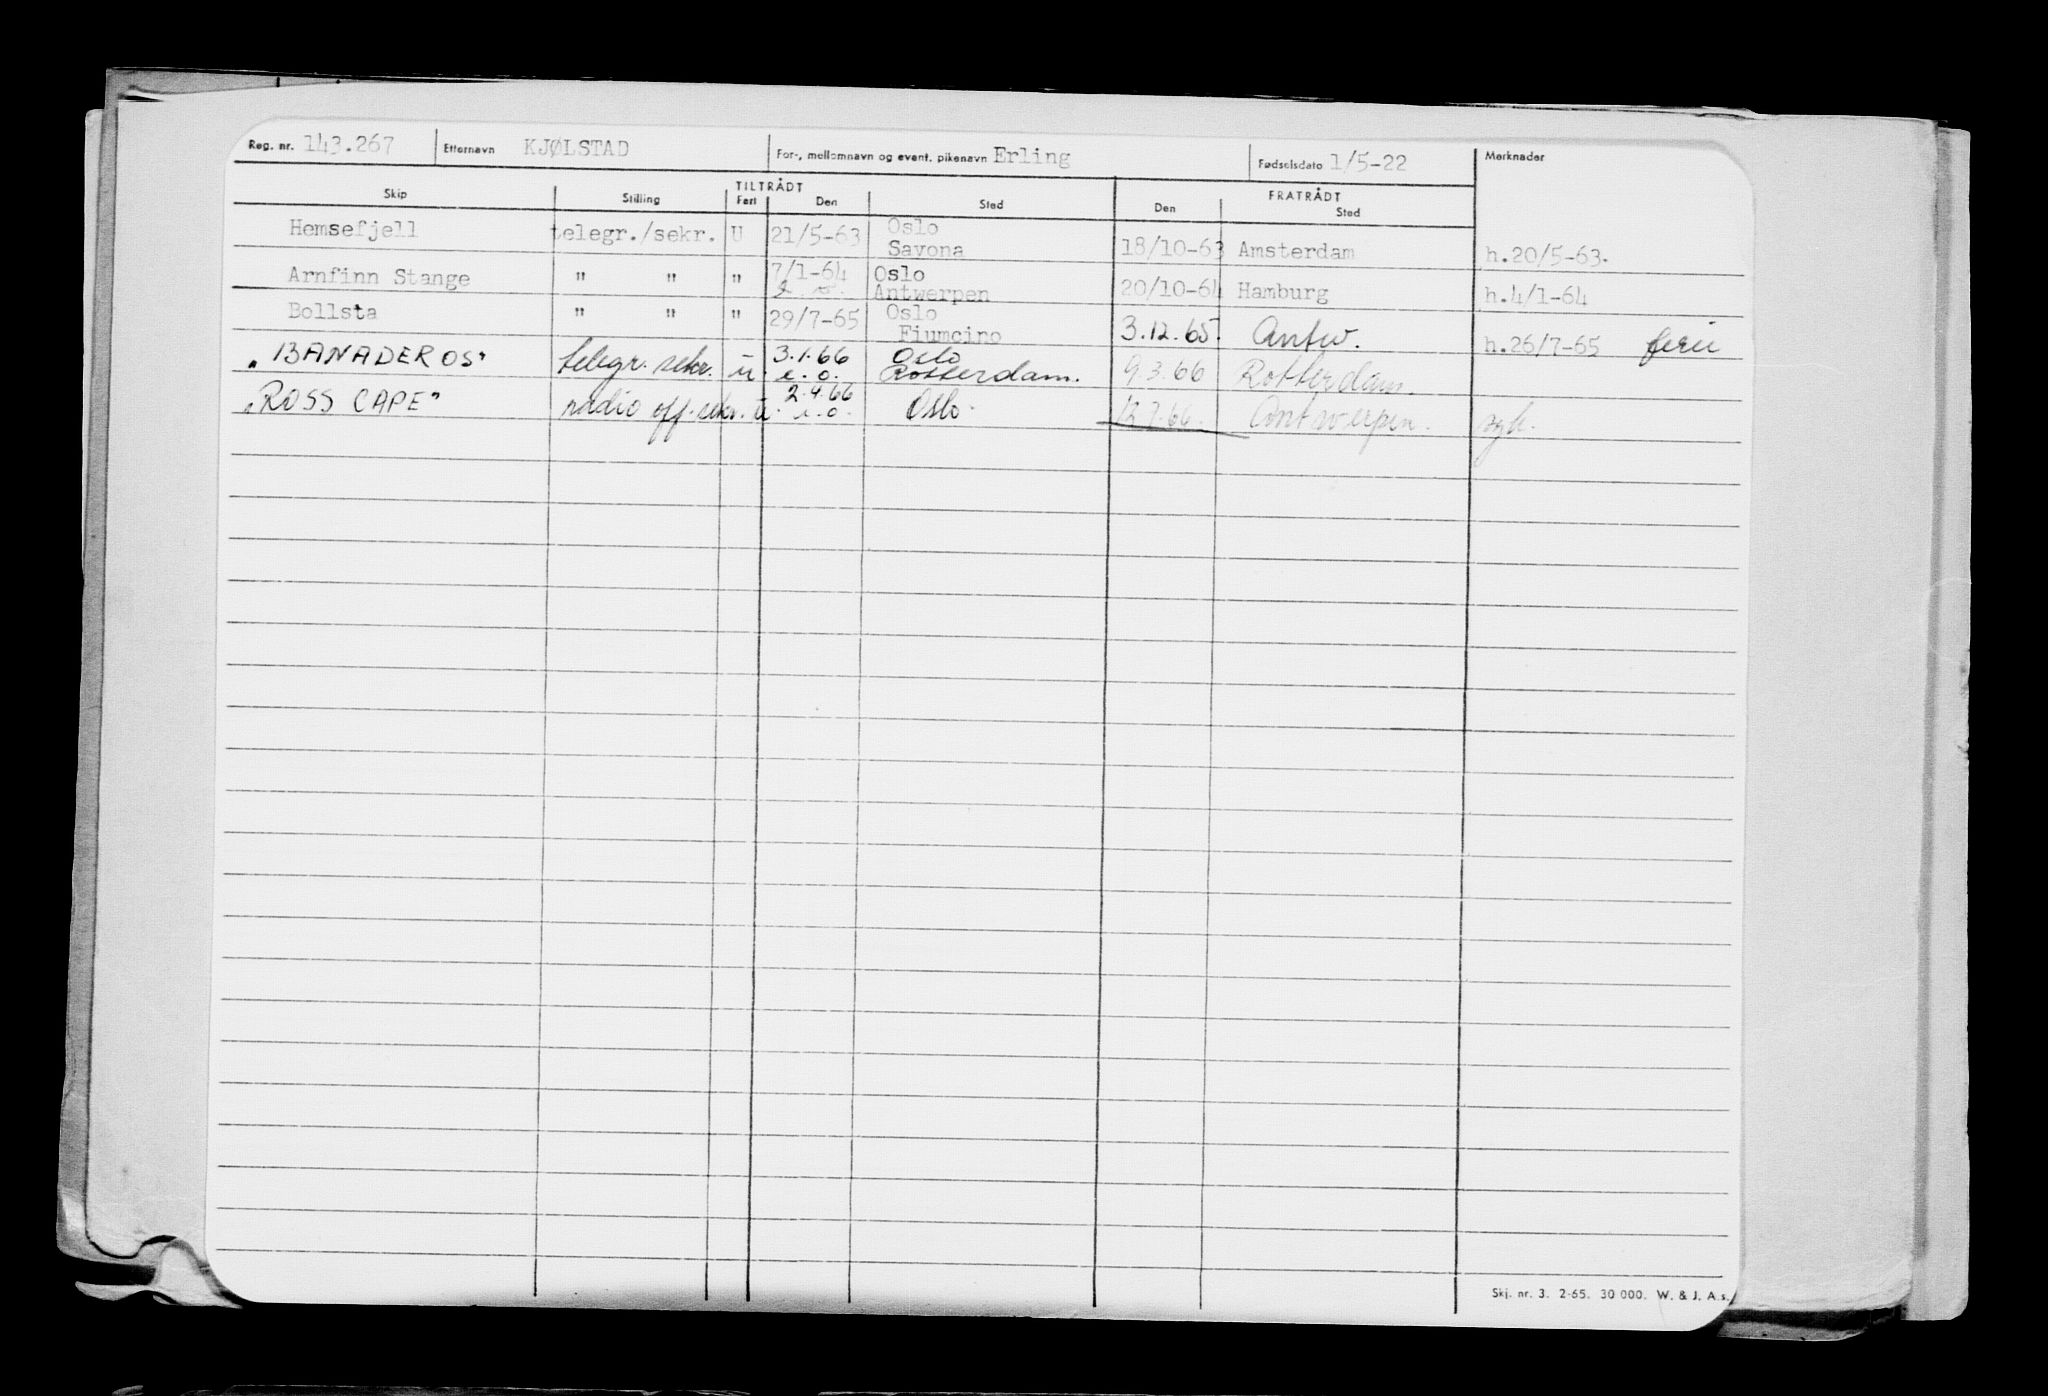 Reg. nr. 143.267 Etternavn KJØLSTAD For-, mellomnavn og event. pikenavn Erling Fødselsdato 1/5-22 Merknader
TILTRÅDT FRATRÅDT
Skip Stilling Fart Den Sted Den Sted
Hemsefjell telegr./sekr. U 21/5-63 Oslo
Savona 18/10-63 Amsterdam h.20/5-63.
Arnfinn Stange " " " 7/1-64 Oslo
Antwerpen 20/10-64 Hamburg h.4/1-64
Bollsta " " " 29/7-65 Oslo
Fiumcino 3.12.65. Antw. h.26/7-65 ferie
"BANADEROS" telegr. sekr. u. 3.1.66 Oslo
e.o. Rotterdam. 9.3.66 Rotterdam.
"ROSS CAPE" radio off. sekr. u. 2.4.66
e.o. Oslo. 12.7.66. Antwerpen. syk.
Skj. nr. 3. 2-65. 30 000. W. & J. A.s.